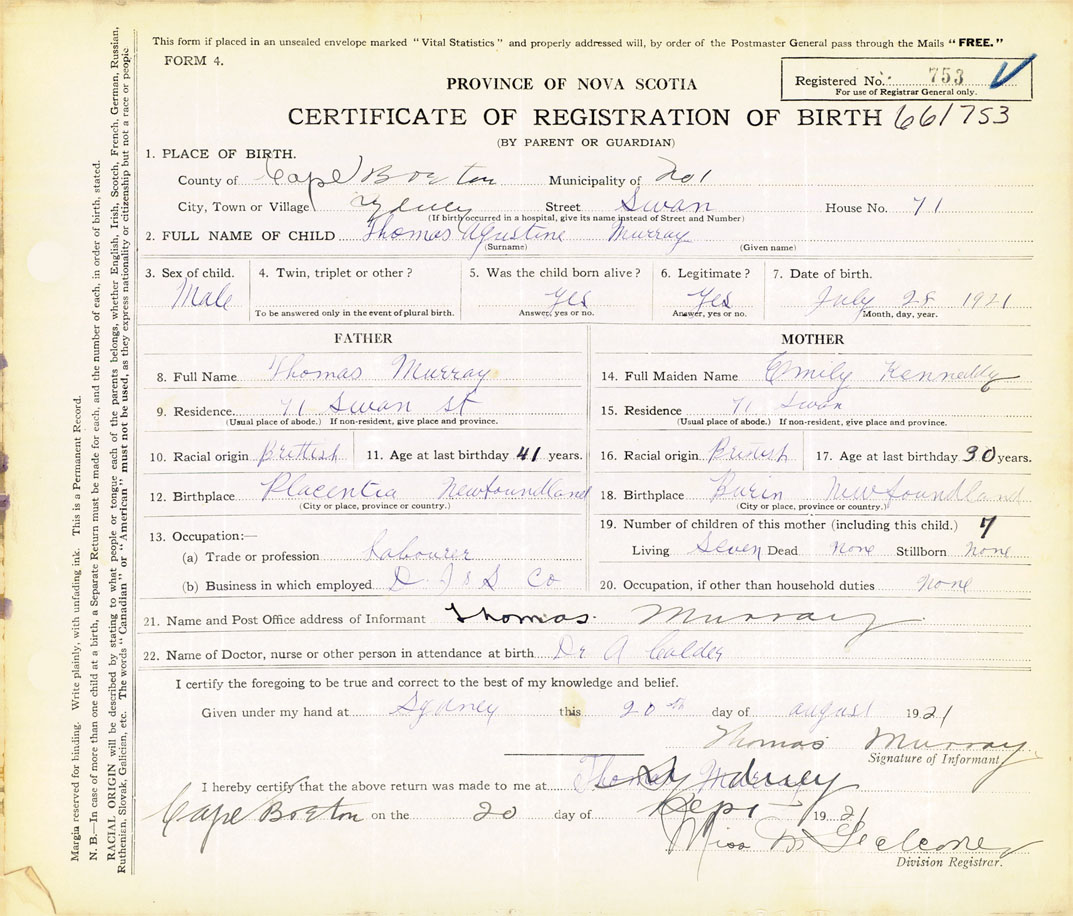 This form if placed in an unsealed envelope marked "Vital Statistics" and properly addressed will, by order of the Postmaster General pass through the Mails "FREE."
FORM 4.
Registered No. 753
For use of Registrar General only.
PROVINCE OF NOVA SCOTIA
CERTIFICATE OF REGISTRATION OF BIRTH 661753
(BY PARENT OR GUARDIAN)
1. PLACE OF BIRTH.
County of Cape Breton Municipality of 201
City, Town or Village Sydney Street Swan House No. 71
(If birth occurred in a hospital, give its name instead of Street and Number)
2. FULL NAME OF CHILD Thomas Agustine Murray
(Surname) (Given name)
3. Sex of child. 4. Twin, triplet or other? 5. Was the child born alive? 6. Legitimate? 7. Date of birth.
Male Yes Yes July 28 1921
To be answered only in the event of plural birth. Answer, yes or no. Answer, yes or no. Month, day, year.
FATHER MOTHER
8. Full Name Thomas Murray 14. Full Maiden Name Emily Kenneddy
9. Residence 71 Swan St 15. Residence 71 Swan
(Usual place of abode.) If non-resident, give place and province. (Usual place of abode.) If non-resident, give place and province.
10. Racial origin Brittish 11. Age at last birthday 41 years. 16. Racial origin British 17. Age at last birthday 30 years.
12. Birthplace Placentia Newfoundland 18. Birthplace Burin Newfoundland
(City or place, province or country.) (City or place, province or country.)
13. Occupation:— 19. Number of children of this mother (including this child.) 7
(a) Trade or profession Labourer Living Seven Dead None Stillborn None
(b) Business in which employed D. I & S Co 20. Occupation, if other than household duties None
21. Name and Post Office address of Informant Thomas Murray
22. Name of Doctor, nurse or other person in attendance at birth Dr A Calder
I certify the foregoing to be true and correct to the best of my knowledge and belief.
Given under my hand at Sydney this 20th day of august 1921
Thomas Murray
Signature of Informant
I hereby certify that the above return was made to me at Thomas Murray Sydney
Cape Breton on the 20 day of Sept 1921
Miss M
Division Registrar.
Margin reserved for binding. Write plainly, with unfading ink. This is a Permanent Record.
N. B.—In case of more than one child at a birth, a Separate Return must be made for each, and the number of each, in order of birth, stated.
RACIAL ORIGIN will be described by stating to what people or tongue each of the parents belongs, whether English, Irish, Scotch, French, German, Russian,
Ruthenian, Slovak, Galician, etc. The words "Canadian" or "American" must not be used, as they express nationality or citizenship but not a race or people